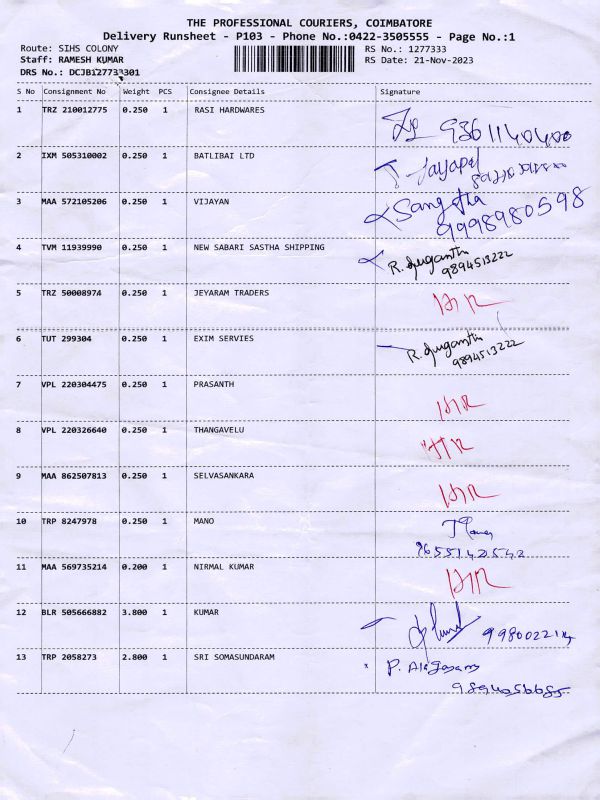 THE PROFESSIONAL COURIERS, COIMBATORE
Delivery Runsheet - P103 - Phone No.:0422-3505555 - Page No.:1
Route: SIHS COLONY
RS No.: 1277333
Staff: RAMESH KUMAR
RS Date: 21-Nov-2023
DRS No.: DCJB127733301
S No Consignment No Weight PCS Consignee Details Signature
1 TRZ 210012775 0.250 1 RASI HARDWARES
9361140400
2 IXM 505310002 0.250 1 BATLIBAI LTD
Jayapal
3 MAA 572105206 0.250 1 VIJAYAN Sangetha
9998980598
4 TVM 11939990 0.250 1 NEW SABARI SASTHA SHIPPING
R. Suganthi
9894513222
5 TRZ 50008974 0.250 1 JEYARAM TRADERS
6 TUT 299304 0.250 1 EXIM SERVIES
R. Suganthi
9894513222
7 VPL 220304475 0.250 1 PRASANTH
8 VPL 220326640 0.250 1 THANGAVELU
9 MAA 862507813 0.250 1 SELVASANKARA
10 TRP 8247978 0.250 1 MANO
9655142542
11 MAA 569735214 0.200 1 NIRMAL KUMAR
12 BLR 505666882 3.800 1 KUMAR
13 TRP 2058273 2.800 1 SRI SOMASUNDARAM